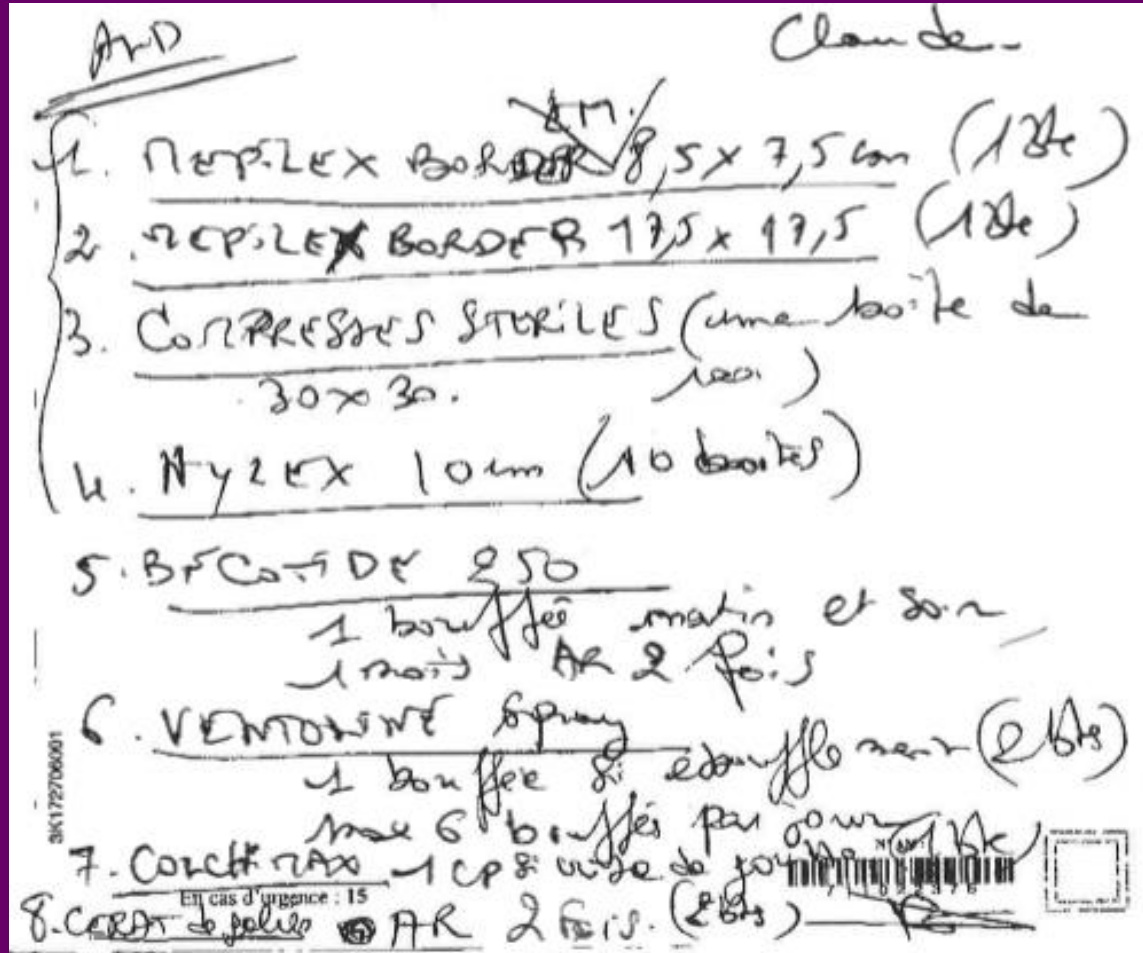 ALD Claude
EM.
1. MEPILEX BORDER 8,5 x 7,5 cm (1 Bte)
2. MEPILEX BORDER 17,5 x 17,5 (1 Bte)
3. COMPRESSES STERILES (une boîte de
30 x 30.
4. 10 cm (10 boites)
5. BÉCOTIDE 250
1 bouffée matin et soir
1 mois AR 2 fois
6. VENTOLINE Spray
1 bouffée si essoufflement (2 Btes)
max 6 bouffées par jour
7. COLCHIMAX 1 cp si crise de goutte (1 Bte)
En cas d'urgence : 15
8. CERAT de galien AR 2 Fois. (2 Btes)
3K172706001